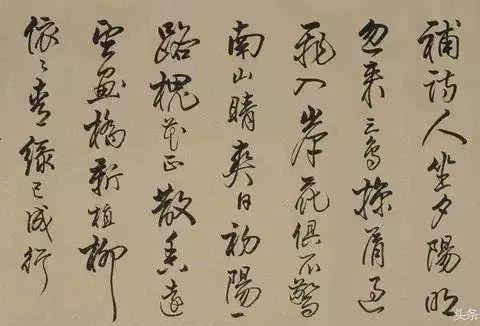 補詩人坐夕陽明
忽来鳥掠過
飛入岸花俱不驚
南山晴爽日初陽一
路槐花正散香遠
望畫橋新植柳
依〻青綠已成行
头条